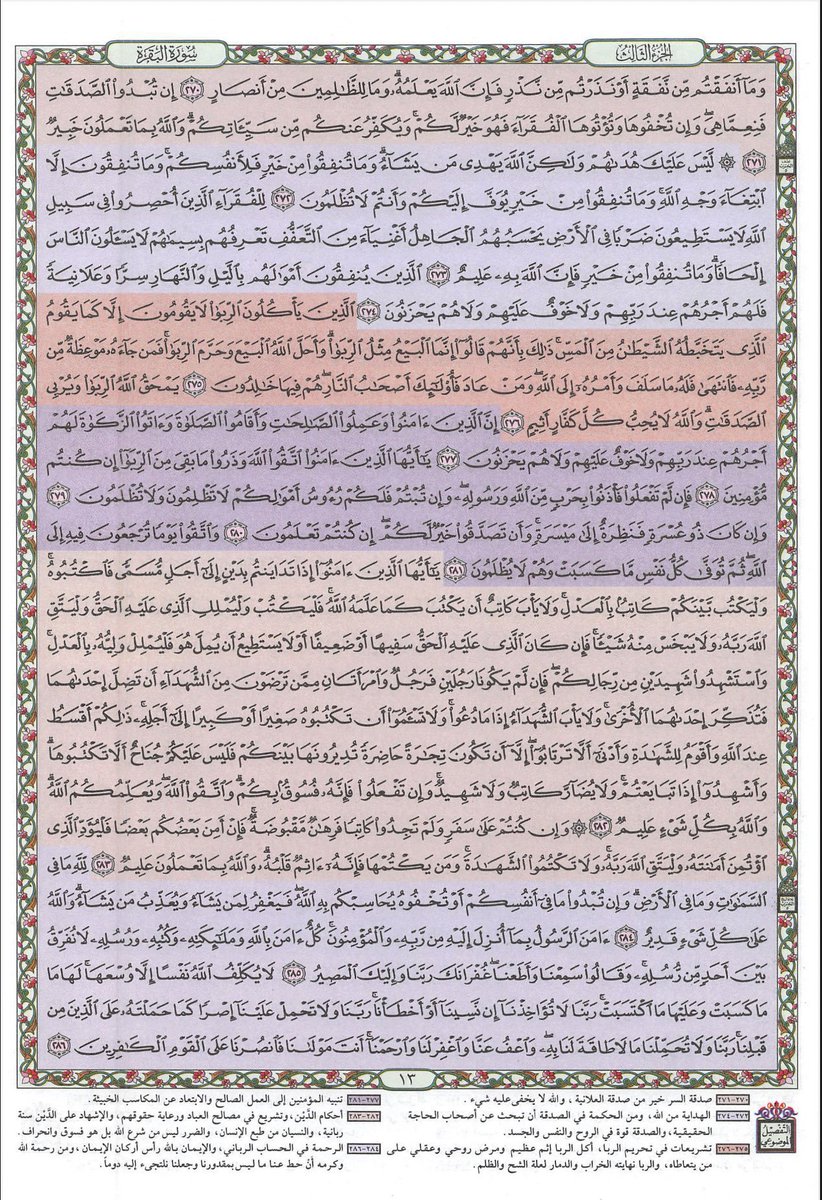 الجزء الثالث
سورة البقرة
وَمَا أَنفَقْتُم مِّن نَّفَقَةٍ أَوْ نَذَرْتُم مِّن نَّذْرٍ فَإِنَّ اللَّهَ يَعْلَمُهُۥ ۗ وَمَا لِلظَّالِمِينَ مِنْ أَنصَارٍ ٢٧٠ إِن تُبْدُوا الصَّدَقَاتِ
فَنِعِمَّا هِىَ ۖ وَإِن تُخْفُوهَا وَتُؤْتُوهَا الْفُقَرَاءَ فَهُوَ خَيْرٌ لَّكُمْ ۚ وَيُكَفِّرُ عَنكُم مِّن سَيِّئَاتِكُمْ ۗ وَاللَّهُ بِمَا تَعْمَلُونَ خَبِيرٌ
٢٧١ ۞ لَّيْسَ عَلَيْكَ هُدَىٰهُمْ وَلَٰكِنَّ اللَّهَ يَهْدِى مَن يَشَاءُ ۗ وَمَا تُنفِقُوا مِنْ خَيْرٍ فَلِأَنفُسِكُمْ ۚ وَمَا تُنفِقُونَ إِلَّا
ابْتِغَاءَ وَجْهِ اللَّهِ ۚ وَمَا تُنفِقُوا مِنْ خَيْرٍ يُوَفَّ إِلَيْكُمْ وَأَنتُمْ لَا تُظْلَمُونَ ٢٧٢ لِلْفُقَرَاءِ الَّذِينَ أُحْصِرُوا فِى سَبِيلِ
اللَّهِ لَا يَسْتَطِيعُونَ ضَرْبًا فِى الْأَرْضِ يَحْسَبُهُمُ الْجَاهِلُ أَغْنِيَاءَ مِنَ التَّعَفُّفِ تَعْرِفُهُم بِسِيمَٰهُمْ لَا يَسْـَٔلُونَ النَّاسَ
إِلْحَافًا ۗ وَمَا تُنفِقُوا مِنْ خَيْرٍ فَإِنَّ اللَّهَ بِهِۦ عَلِيمٌ ٢٧٣ الَّذِينَ يُنفِقُونَ أَمْوَٰلَهُم بِالَّيْلِ وَالنَّهَارِ سِرًّا وَعَلَانِيَةً
فَلَهُمْ أَجْرُهُمْ عِندَ رَبِّهِمْ وَلَا خَوْفٌ عَلَيْهِمْ وَلَا هُمْ يَحْزَنُونَ ٢٧٤ الَّذِينَ يَأْكُلُونَ الرِّبَوٰا لَا يَقُومُونَ إِلَّا كَمَا يَقُومُ
الَّذِى يَتَخَبَّطُهُ الشَّيْطَٰنُ مِنَ الْمَسِّ ۚ ذَٰلِكَ بِأَنَّهُمْ قَالُوا إِنَّمَا الْبَيْعُ مِثْلُ الرِّبَوٰا ۗ وَأَحَلَّ اللَّهُ الْبَيْعَ وَحَرَّمَ الرِّبَوٰا ۚ فَمَن جَاءَهُۥ مَوْعِظَةٌ مِّن
رَّبِّهِۦ فَانتَهَىٰ فَلَهُۥ مَا سَلَفَ وَأَمْرُهُۥ إِلَى اللَّهِ ۖ وَمَنْ عَادَ فَأُولَٰئِكَ أَصْحَٰبُ النَّارِ ۖ هُمْ فِيهَا خَٰلِدُونَ ٢٧٥ يَمْحَقُ اللَّهُ الرِّبَوٰا وَيُرْبِى
الصَّدَقَٰتِ ۗ وَاللَّهُ لَا يُحِبُّ كُلَّ كَفَّارٍ أَثِيمٍ ٢٧٦ إِنَّ الَّذِينَ ءَامَنُوا وَعَمِلُوا الصَّٰلِحَٰتِ وَأَقَامُوا الصَّلَوٰةَ وَءَاتَوُا الزَّكَوٰةَ لَهُمْ
أَجْرُهُمْ عِندَ رَبِّهِمْ وَلَا خَوْفٌ عَلَيْهِمْ وَلَا هُمْ يَحْزَنُونَ ٢٧٧ يَٰأَيُّهَا الَّذِينَ ءَامَنُوا اتَّقُوا اللَّهَ وَذَرُوا مَا بَقِىَ مِنَ الرِّبَوٰا إِن كُنتُم
مُّؤْمِنِينَ ٢٧٨ فَإِن لَّمْ تَفْعَلُوا فَأْذَنُوا بِحَرْبٍ مِّنَ اللَّهِ وَرَسُولِهِۦ ۖ وَإِن تُبْتُمْ فَلَكُمْ رُءُوسُ أَمْوَٰلِكُمْ لَا تَظْلِمُونَ وَلَا تُظْلَمُونَ ٢٧٩
وَإِن كَانَ ذُو عُسْرَةٍ فَنَظِرَةٌ إِلَىٰ مَيْسَرَةٍ ۚ وَأَن تَصَدَّقُوا خَيْرٌ لَّكُمْ ۖ إِن كُنتُمْ تَعْلَمُونَ ٢٨٠ وَاتَّقُوا يَوْمًا تُرْجَعُونَ فِيهِ إِلَى
اللَّهِ ۖ ثُمَّ تُوَفَّىٰ كُلُّ نَفْسٍ مَّا كَسَبَتْ وَهُمْ لَا يُظْلَمُونَ ٢٨١ يَٰأَيُّهَا الَّذِينَ ءَامَنُوا إِذَا تَدَايَنتُم بِدَيْنٍ إِلَىٰ أَجَلٍ مُّسَمًّى فَاكْتُبُوهُ ۚ
وَلْيَكْتُب بَّيْنَكُمْ كَاتِبٌ بِالْعَدْلِ ۚ وَلَا يَأْبَ كَاتِبٌ أَن يَكْتُبَ كَمَا عَلَّمَهُ اللَّهُ ۚ فَلْيَكْتُبْ وَلْيُمْلِلِ الَّذِى عَلَيْهِ الْحَقُّ وَلْيَتَّقِ
اللَّهَ رَبَّهُۥ وَلَا يَبْخَسْ مِنْهُ شَيْـًٔا ۚ فَإِن كَانَ الَّذِى عَلَيْهِ الْحَقُّ سَفِيهًا أَوْ ضَعِيفًا أَوْ لَا يَسْتَطِيعُ أَن يُمِلَّ هُوَ فَلْيُمْلِلْ وَلِيُّهُۥ بِالْعَدْلِ ۚ
وَاسْتَشْهِدُوا شَهِيدَيْنِ مِن رِّجَالِكُمْ ۖ فَإِن لَّمْ يَكُونَا رَجُلَيْنِ فَرَجُلٌ وَامْرَأَتَانِ مِمَّن تَرْضَوْنَ مِنَ الشُّهَدَاءِ أَن تَضِلَّ إِحْدَىٰهُمَا
فَتُذَكِّرَ إِحْدَىٰهُمَا الْأُخْرَىٰ ۚ وَلَا يَأْبَ الشُّهَدَاءُ إِذَا مَا دُعُوا ۚ وَلَا تَسْـَٔمُوا أَن تَكْتُبُوهُ صَغِيرًا أَوْ كَبِيرًا إِلَىٰ أَجَلِهِۦ ۚ ذَٰلِكُمْ أَقْسَطُ
عِندَ اللَّهِ وَأَقْوَمُ لِلشَّهَٰدَةِ وَأَدْنَىٰ أَلَّا تَرْتَابُوا ۖ إِلَّا أَن تَكُونَ تِجَٰرَةً حَاضِرَةً تُدِيرُونَهَا بَيْنَكُمْ فَلَيْسَ عَلَيْكُمْ جُنَاحٌ أَلَّا تَكْتُبُوهَا ۗ
وَأَشْهِدُوا إِذَا تَبَايَعْتُمْ ۚ وَلَا يُضَارَّ كَاتِبٌ وَلَا شَهِيدٌ ۚ وَإِن تَفْعَلُوا فَإِنَّهُۥ فُسُوقٌ بِكُمْ ۗ وَاتَّقُوا اللَّهَ ۖ وَيُعَلِّمُكُمُ اللَّهُ ۗ
وَاللَّهُ بِكُلِّ شَىْءٍ عَلِيمٌ ٢٨٢ ۞ وَإِن كُنتُمْ عَلَىٰ سَفَرٍ وَلَمْ تَجِدُوا كَاتِبًا فَرِهَٰنٌ مَّقْبُوضَةٌ ۖ فَإِنْ أَمِنَ بَعْضُكُم بَعْضًا فَلْيُؤَدِّ الَّذِى
اؤْتُمِنَ أَمَٰنَتَهُۥ وَلْيَتَّقِ اللَّهَ رَبَّهُۥ ۗ وَلَا تَكْتُمُوا الشَّهَٰدَةَ ۚ وَمَن يَكْتُمْهَا فَإِنَّهُۥ ءَاثِمٌ قَلْبُهُۥ ۗ وَاللَّهُ بِمَا تَعْمَلُونَ عَلِيمٌ ٢٨٣ لِّلَّهِ مَا فِى
السَّمَٰوَٰتِ وَمَا فِى الْأَرْضِ ۗ وَإِن تُبْدُوا مَا فِى أَنفُسِكُمْ أَوْ تُخْفُوهُ يُحَاسِبْكُم بِهِ اللَّهُ ۖ فَيَغْفِرُ لِمَن يَشَاءُ وَيُعَذِّبُ مَن يَشَاءُ ۗ وَاللَّهُ
عَلَىٰ كُلِّ شَىْءٍ قَدِيرٌ ٢٨٤ ءَامَنَ الرَّسُولُ بِمَا أُنزِلَ إِلَيْهِ مِن رَّبِّهِۦ وَالْمُؤْمِنُونَ ۚ كُلٌّ ءَامَنَ بِاللَّهِ وَمَلَٰئِكَتِهِۦ وَكُتُبِهِۦ وَرُسُلِهِۦ لَا نُفَرِّقُ
بَيْنَ أَحَدٍ مِّن رُّسُلِهِۦ ۚ وَقَالُوا سَمِعْنَا وَأَطَعْنَا ۖ غُفْرَانَكَ رَبَّنَا وَإِلَيْكَ الْمَصِيرُ ٢٨٥ لَا يُكَلِّفُ اللَّهُ نَفْسًا إِلَّا وُسْعَهَا ۚ لَهَا مَا
كَسَبَتْ وَعَلَيْهَا مَا اكْتَسَبَتْ ۗ رَبَّنَا لَا تُؤَاخِذْنَا إِن نَّسِينَا أَوْ أَخْطَأْنَا ۚ رَبَّنَا وَلَا تَحْمِلْ عَلَيْنَا إِصْرًا كَمَا حَمَلْتَهُۥ عَلَى الَّذِينَ مِن
قَبْلِنَا ۚ رَبَّنَا وَلَا تُحَمِّلْنَا مَا لَا طَاقَةَ لَنَا بِهِۦ ۖ وَاعْفُ عَنَّا وَاغْفِرْ لَنَا وَارْحَمْنَا ۚ أَنتَ مَوْلَىٰنَا فَانصُرْنَا عَلَى الْقَوْمِ الْكَٰفِرِينَ ٢٨٦
١٣
التفصيل الموضوعي
٢٧٠-٢٧١ صدقة السر خير من صدقة العلانية ، والله لا يخفى عليه شيء .
٢٧٢-٢٧٤ الهداية من الله، ومن الحكمة في الصدقة أن تبحث عن أصحاب الحاجة
الحقيقية، والصدقة قوة في الروح والنفس والجسد.
٢٧٥-٢٧٦ تشريعات في تحريم الربا، أكل الربا إثم عظيم ومرض روحي وعقلي على
من يتعاطاه، والربا نهايته الخراب والدمار لعلة الشح والظلم.
٢٧٧-٢٨١ تنبيه المؤمنين إلى العمل الصالح والابتعاد عن المكاسب الخبيثة.
٢٨٢-٢٨٣ أحكام الدَّين، وتشريع في مصالح العباد ورعاية حقوقهم، والإشهاد على الدَّيْن سنة
ربانية، والنسيان من طبع الإنسان، والضرر ليس من شرع الله بل هو فسوق وانحراف.
٢٨٤-٢٨٦ الرحمة في الحساب الرباني، والإيمان بالله رأس أركان الإيمان، ومن رحمة الله
وكرمه أنْ حط عنا ما ليس بمقدورنا وجعلنا نلتجىء إليه دوماً.